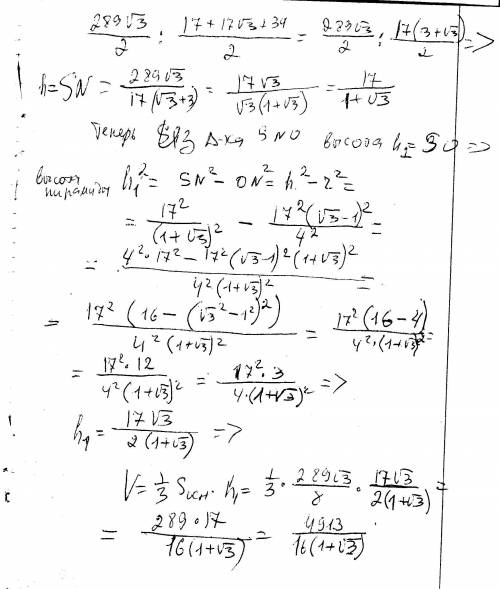 289√3/2 : (17+17√3+34)/2 = 289√3/2 : 17(3+√3)/2 =>
h=SN = 289√3/(17(√3+3)) = 17√3/(√3(1+√3)) = 17/(1+√3)
Теперь из Δ-ка SNO высота h₁=SO =>
высота пирамиды h₁² = SN² - ON² = h² - r² =
= 17²/(1+√3)² - 17²(√3-1)²/4² =
= (4²·17² - 17²(√3-1)²(1+√3)²)/(4²(1+√3)²) =
= 17²(16-(√3²-1²)²)/(4²(1+√3)²) = 17²(16-4)/(4²·(1+√3)²) =
= 17²·12/(4²(1+√3)²) = 17²·3/(4·(1+√3)²) =>
h₁ = 17√3/(2(1+√3)) =>
V = 1/3 Sосн. h₁ = 1/3 · 289√3/8 · 17√3/(2(1+√3)) =
= 289·17/(16(1+√3)) = 4913/(16(1+√3))